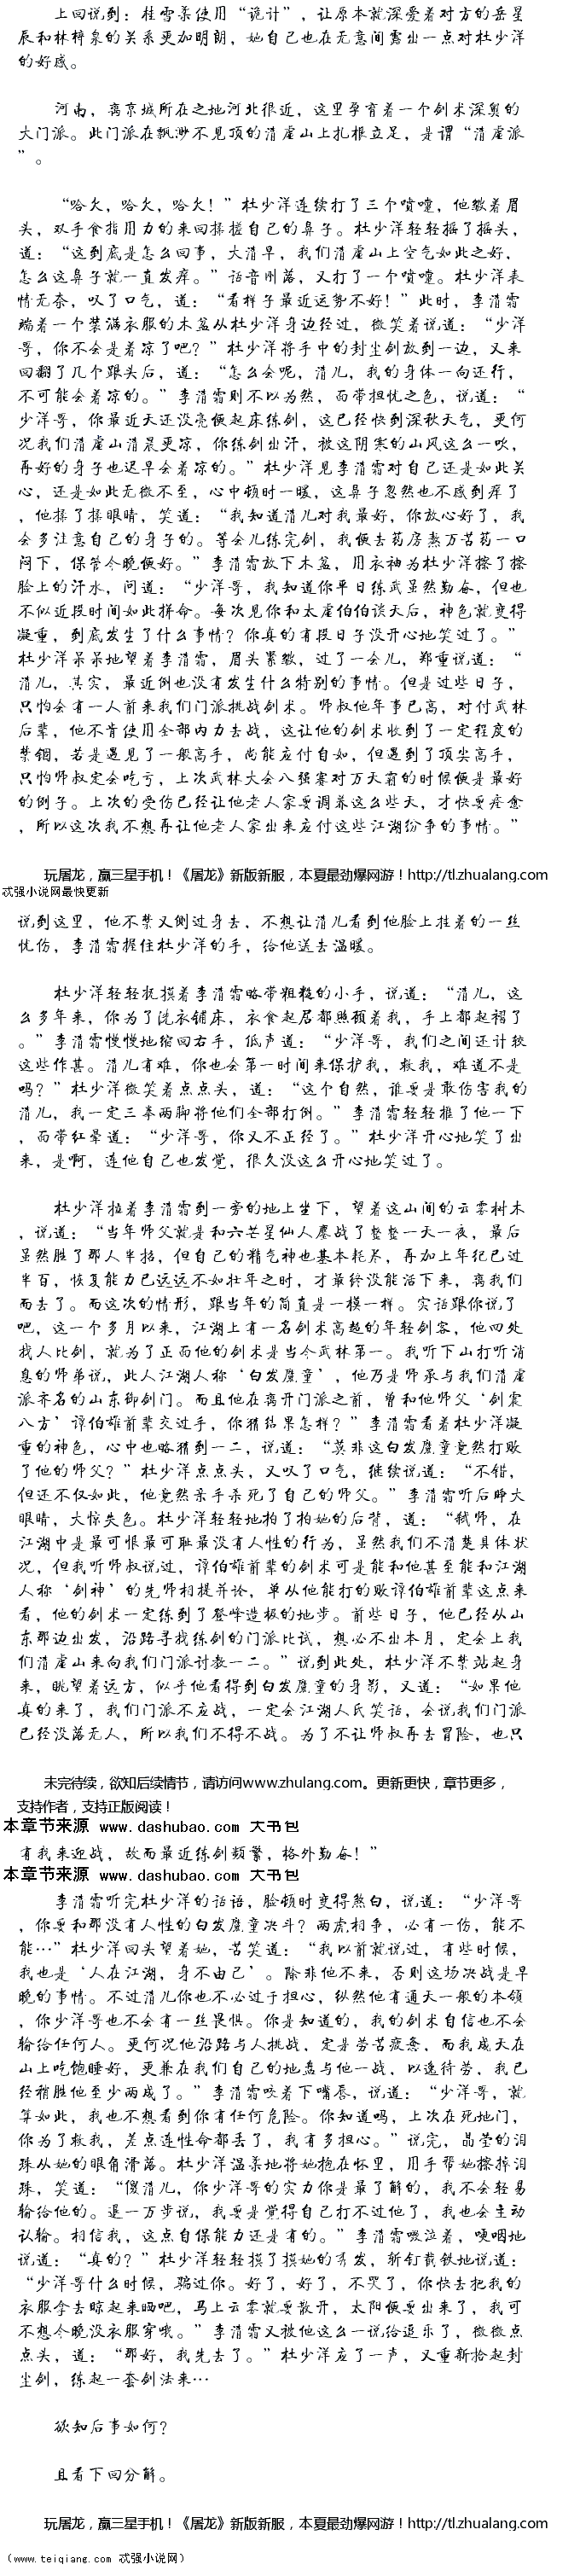 上回说到：桂雪柔使用“诡计”，让原本就深爱着对方的岳星
辰和林梓泉的关系更加明朗，她自己也在无意间露出一点对杜少洋
的好感。
河南，离京城所在之地河北很近，这里孕育着一个剑术深奥的
大门派。此门派在飘渺不见顶的清虚山上扎根立足，是谓“清虚派
”。
“哈欠，哈欠，哈欠！”杜少洋连续打了三个喷嚏，他皱着眉
头，双手食指用力的来回揉搓自己的鼻子。杜少洋轻轻摇了摇头，
道：“这到底是怎么回事，大清早，我们清虚山上空气如此之好，
怎么这鼻子就一直发痒。”话音刚落，又打了一个喷嚏。杜少洋表
情无奈，叹了口气，道：“看样子最近运势不好！”此时，李清霜
端着一个装满衣服的木盆从杜少洋身边经过，微笑着说道：“少洋
哥，你不会是着凉了吧？”杜少洋将手中的封尘剑放到一边，又来
回翻了几个跟头后，道：“怎么会呢，清儿，我的身体一向还行，
不可能会着凉的。”李清霜则不以为然，面带担忧之色，说道：“
少洋哥，你最近天还没亮便起床练剑，这已经快到深秋天气，更何
况我们清虚山清晨更凉，你练剑出汗，被这阴寒的山风这么一吹，
再好的身子也迟早会着凉的。”杜少洋见李清霜对自己还是如此关
心，还是如此无微不至，心中顿时一暖，这鼻子忽然也不感到痒了
，他揉了揉眼睛，笑道：“我知道清儿对我最好，你放心好了，我
会多注意自己的身子的。等会儿练完剑，我便去药房熬万苦药一口
闷下，保管今晚便好。”李清霜放下木盆，用衣袖为杜少洋擦了擦
脸上的汗水，问道：“少洋哥，我知道你平日练武虽然勤奋，但也
不似近段时间如此拼命。每次见你和太虚伯伯谈天后，神色就变得
凝重，到底发生了什么事情？你真的有段日子没开心地笑过了。”
杜少洋呆呆地望着李清霜，眉头紧皱，过了一会儿，郑重说道：“
清儿，其实，最近倒也没有发生什么特别的事情。但是过些日子，
只怕会有一人前来我们门派挑战剑术。师叔他年事已高，对付武林
后辈，他不肯使用全部内力去战，这让他的剑术收到了一定程度的
禁锢，若是遇见了一般高手，尚能应付自如，但遇到了顶尖高手，
只怕师叔定会吃亏，上次武林大会八强赛对万天霸的时候便是最好
的例子。上次的受伤已经让他老人家要调养这么些天，才快要痊愈
，所以这次我不想再让他老人家出来应付这些江湖纷争的事情。”
玩屠龙，赢三星手机！《屠龙》新版新服，本夏最劲爆网游！http://tl.zhualang.com
忒强小说网最快更新
说到这里，他不禁又侧过身去，不想让清儿看到他脸上挂着的一丝
忧伤，李清霜握住杜少洋的手，给他送去温暖。
杜少洋轻轻抚摸着李清霜略带粗糙的小手，说道：“清儿，这
么多年来，你为了洗衣铺床，衣食起居都照顾着我，手上都起褶了
。”李清霜慢慢地缩回右手，低声道：“少洋哥，我们之间还计较
这些作甚。清儿有难，你也会第一时间来保护我，救我，难道不是
吗？”杜少洋微笑着点点头，道：“这个自然，谁要是敢伤害我的
清儿，我一定三拳两脚将他们全部打倒。”李清霜轻轻推了他一下
，面带红晕道：“少洋哥，你又不正经了。”杜少洋开心地笑了出
来，是啊，连他自己也发觉，很久没这么开心地笑过了。
杜少洋拉着李清霜到一旁的地上坐下，望着这山间的云雾树木
，说道：“当年师父就是和六芒星仙人鏖战了整整一天一夜，最后
虽然胜了那人半招，但自己的精气神也基本耗尽，再加上年纪已过
半百，恢复能力已远远不如壮年之时，才最终没能活下来，离我们
而去了。而这次的情形，跟当年的简直是一模一样。实话跟你说了
吧，这一个多月以来，江湖上有一名剑术高超的年轻剑客，他四处
找人比剑，就为了正面他的剑术是当今武林第一。我听下山打听消
息的师弟说，此人江湖人称‘白发魔童’，他乃是师承与我们清虚
派齐名的山东御剑门。而且他在离开门派之前，曾和他师父‘剑震
八方’谭伯雄前辈交过手，你猜结果怎样？”李清霜看着杜少洋凝
重的神色，心中也略猜到一二，说道：“莫非这白发魔童竟然打败
了他的师父？”杜少洋点点头，又叹了口气，继续说道：“不错，
但还不仅如此，他竟然亲手杀死了自己的师父。”李清霜听后睁大
眼睛，大惊失色。杜少洋轻轻地拍了拍她的后背，道：“弑师，在
江湖中是最可恨最可耻最没有人性的行为，虽然我们不清楚具体状
况，但我听师叔说过，谭伯雄前辈的剑术可是能和他甚至能和江湖
人称‘剑神’的先师相提并论，单从他能打的败谭伯雄前辈这点来
看，他的剑术一定练到了登峰造极的地步。前些日子，他已经从山
东那边出发，沿路寻找练剑的门派比试，想必不出本月，定会上我
们清虚山来向我们门派讨教一二。”说到此处，杜少洋不禁站起身
来，眺望着远方，似乎他看得到白发魔童的身影，又道：“如果他
真的来了，我们门派不应战，一定会江湖人氏笑话，会说我们门派
已经没落无人，所以我们不得不战。为了不让师叔再去冒险，也只
未完待续，欲知后续情节，请访问www.zhulang.com。更新更快，章节更多，
支持作者，支持正版阅读！
本章节来源 www.dashubao.com 大书包
有我来迎战，故而最近练剑频繁，格外勤奋！”
本章节来源 www.dashubao.com 大书包
李清霜听完杜少洋的话语，脸顿时变得煞白，说道：“少洋哥
，你要和那没有人性的白发魔童决斗？两虎相争，必有一伤，能不
能…”杜少洋回头望着她，苦笑道：“我以前就说过，有些时候，
我也是‘人在江湖，身不由己’。除非他不来，否则这场决战是早
晚的事情。不过清儿你也不必过于担心，纵然他有通天一般的本领
，你少洋哥也不会有一丝畏惧。你是知道的，我的剑术自信也不会
输给任何人。更何况他沿路与人挑战，定是劳苦疲惫，而我成天在
山上吃饱睡好，更兼在我们自己的地盘与他一战，以逸待劳，我已
经稍胜他至少两成了。”李清霜咬着下嘴唇，说道：“少洋哥，就
算如此，我也不想看到你有任何危险。你知道吗，上次在死地门，
你为了救我，差点连性命都丢了，我有多担心。”说完，晶莹的泪
珠从她的眼角滑落。杜少洋温柔地将她抱在怀里，用手帮她擦掉泪
珠，笑道：“傻清儿，你少洋哥的实力你是最了解的，我不会轻易
输给他的。退一万步说，我要是觉得自己打不过他了，我也会主动
认输。相信我，这点自保能力还是有的。”李清霜啜泣着，哽咽地
说道：“真的？”杜少洋轻轻摸了摸她的秀发，斩钉截铁地说道：
“少洋哥什么时候，骗过你。好了，好了，不哭了，你快去把我的
衣服拿去晾起来晒吧，马上云雾就要散开，太阳便要出来了，我可
不想今晚没衣服穿哦。”李清霜又被他这么一说给逗乐了，微微点
点头，道：“那好，我先去了。”杜少洋应了一声，又重新拾起封
尘剑，练起一套剑法来…
欲知后事如何？
且看下回分解。
玩屠龙，赢三星手机！《屠龙》新版新服，本夏最劲爆网游！http://tl.zhualang.com
（www.teiqiang.com 忒强小说网）